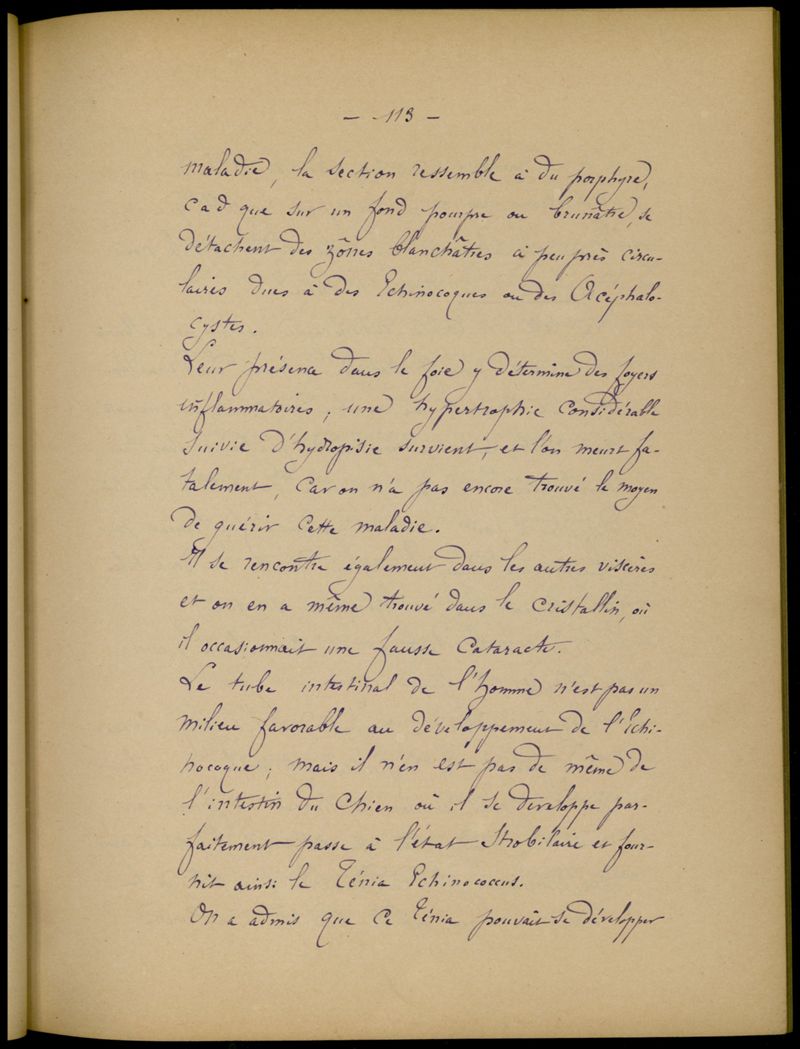 — 113 —
maladie, la section ressemble à du porphyre,
càd que sur un fond pourpre ou brunâtre, se
détachent des zônes blanchâtres à peu près circu-
laires dues à des Echinocoques ou des Acéphalo-
cystes.
Leur présence dans le foie y détermine des foyers
inflammatoires, une hypertrophie considérable
suivie d'hydropisie survient, et l'on meurt fa-
talement, car on n'a pas encore trouvé le moyen
de guérir cette maladie.
Il se rencontre également dans les autres viscères
et on en a même trouvé dans le cristallin, où
il occasionnait une fausse cataracte.
Le tube intestinal de l'homme n'est pas un
milieu favorable au développement de l'Echi-
nocoque; mais il n'en est pas de même de
l'intestin du Chien où il se developpe par-
faitement passe à l'état Strobilaire et four-
nit ainsi le Ténia Echinococcus.
On a admis que ce Ténia pouvait se développer